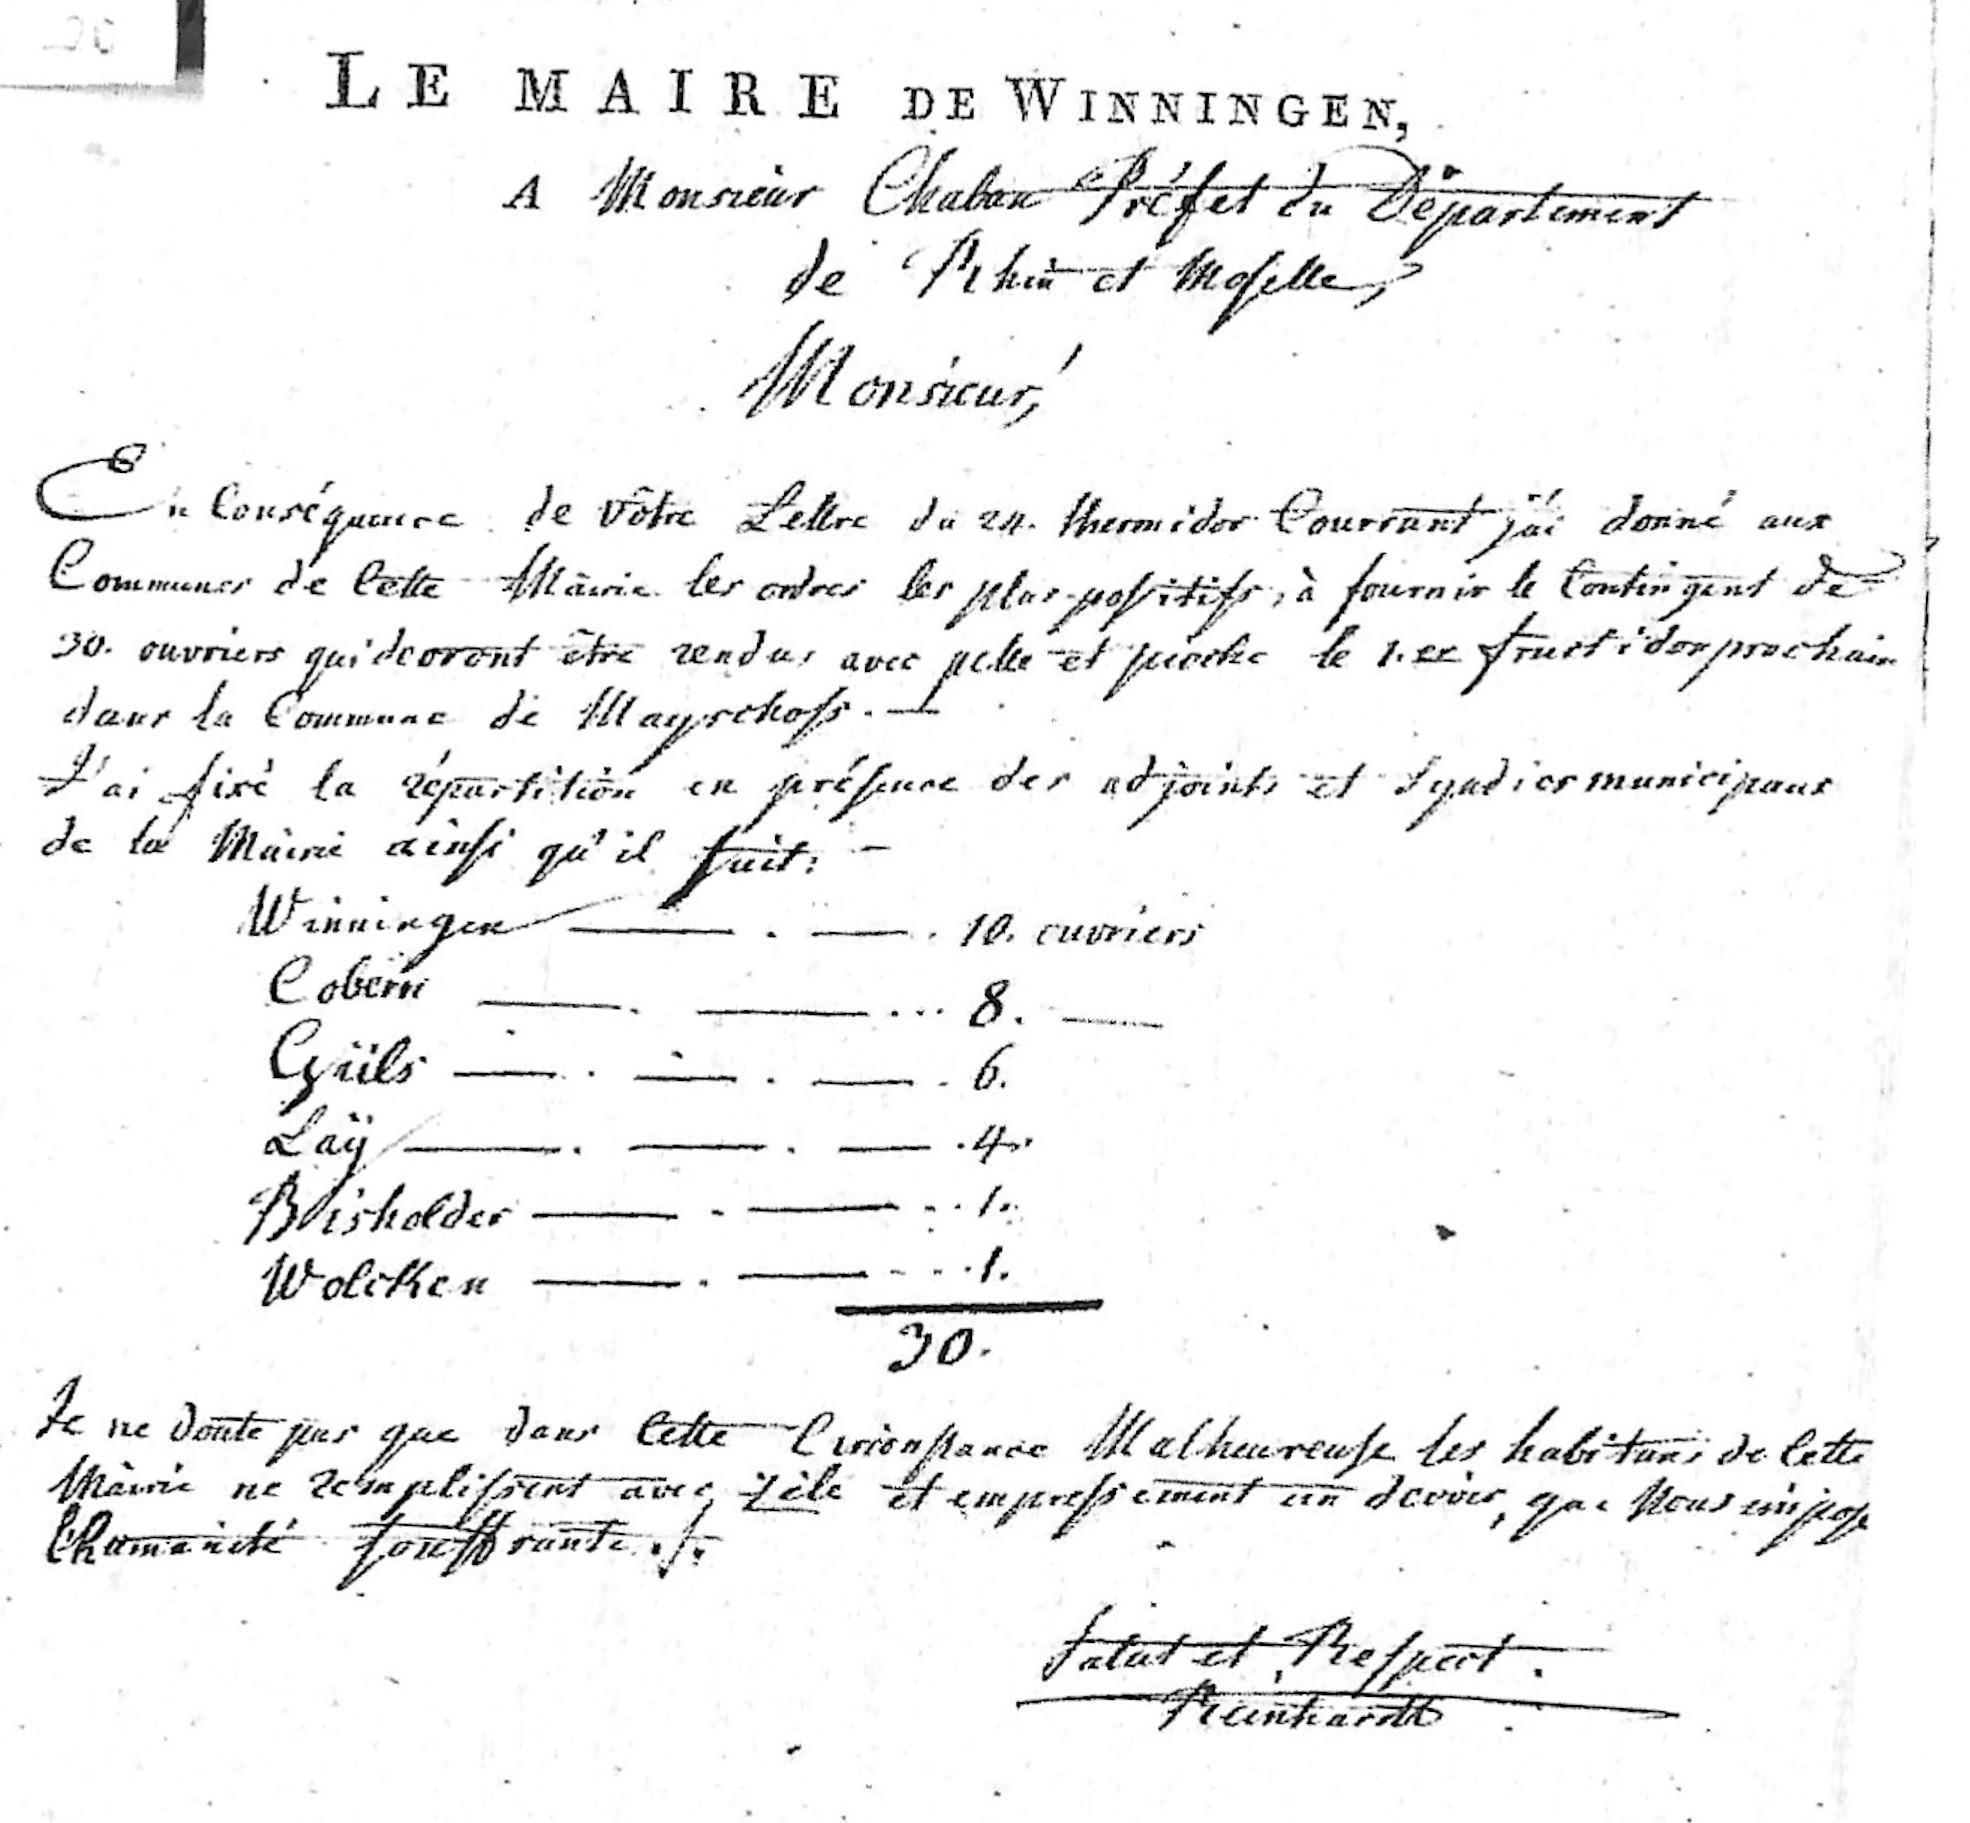 LE MAIRE DE WINNINGEN,
A Monsieur Chaban Préfet du Département
de Rhin et Moselle,
Monsieur,
En Conséquence de vôtre Lettre du 24. thermidor Courrant j'ai donné aux
Communes de Cette Mairie les ordres les plus positifs, à fournir le Contingent de
30. ouvriers qui devront être rendus avec pelle et pioche le 1.er fructidor prochain
dans la Commune de Mayschoss. —
J'ai fixé la répartition en présence des adjoints et Syndics municipaux
de la Mairie ainsi qu'il suit: —
Winningen — . — . 10. ouvriers
Cobern — . — ... 8. —
Güls — . — . — . 6.
Laÿ — . — . — . 4.
Bisholder — . — . . 1.
Wolcken — . — . . . 1.
30.
Je ne doute pas que dans Cette Circonstance Malheureuse les habitans de Cette
Mairie ne remplissent avec zèle et empressement un devoir, que Nous impose
l'humanité souffrante ./.
Salut et Respect.
Reinhardt